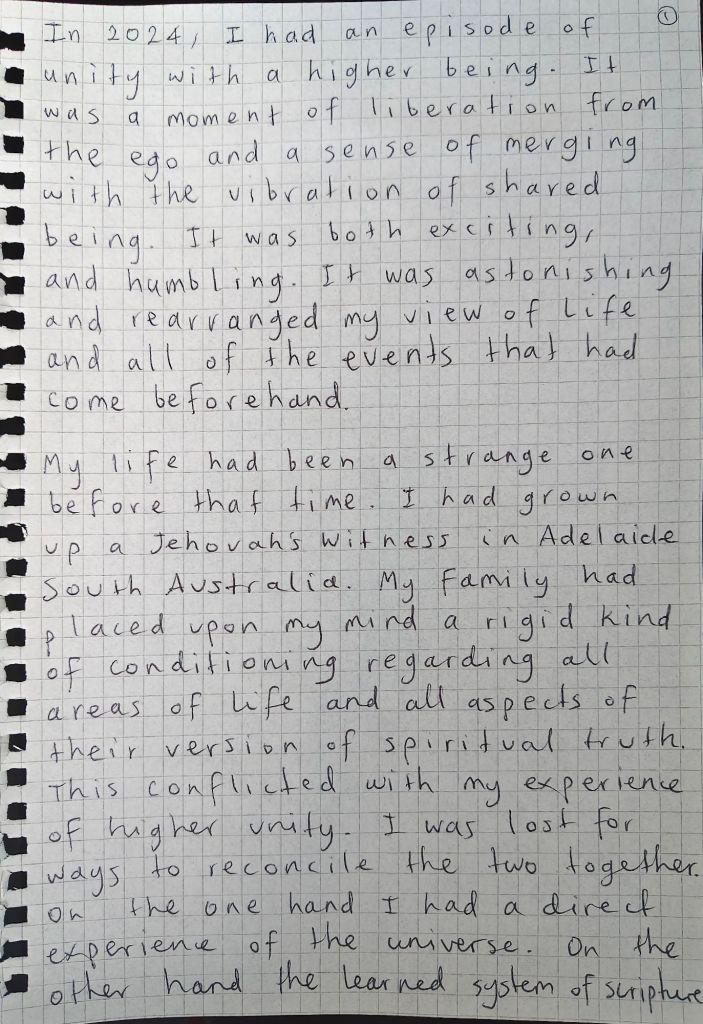 ①
In 2024, I had an episode of
unity with a higher being. It
was a moment of liberation from
the ego and a sense of merging
with the vibration of shared
being. It was both exciting,
and humbling. It was astonishing
and rearranged my view of life
and all of the events that had
come beforehand.
My life had been a strange one
before that time. I had grown
up a Jehovah's Witness in Adelaide
South Australia. My family had
placed upon my mind a rigid kind
of conditioning regarding all
areas of life and all aspects of
their version of spiritual truth.
This conflicted with my experience
of higher unity. I was lost for
ways to reconcile the two together.
On the one hand I had a direct
experience of the universe. On the
other hand the learned system of scripture